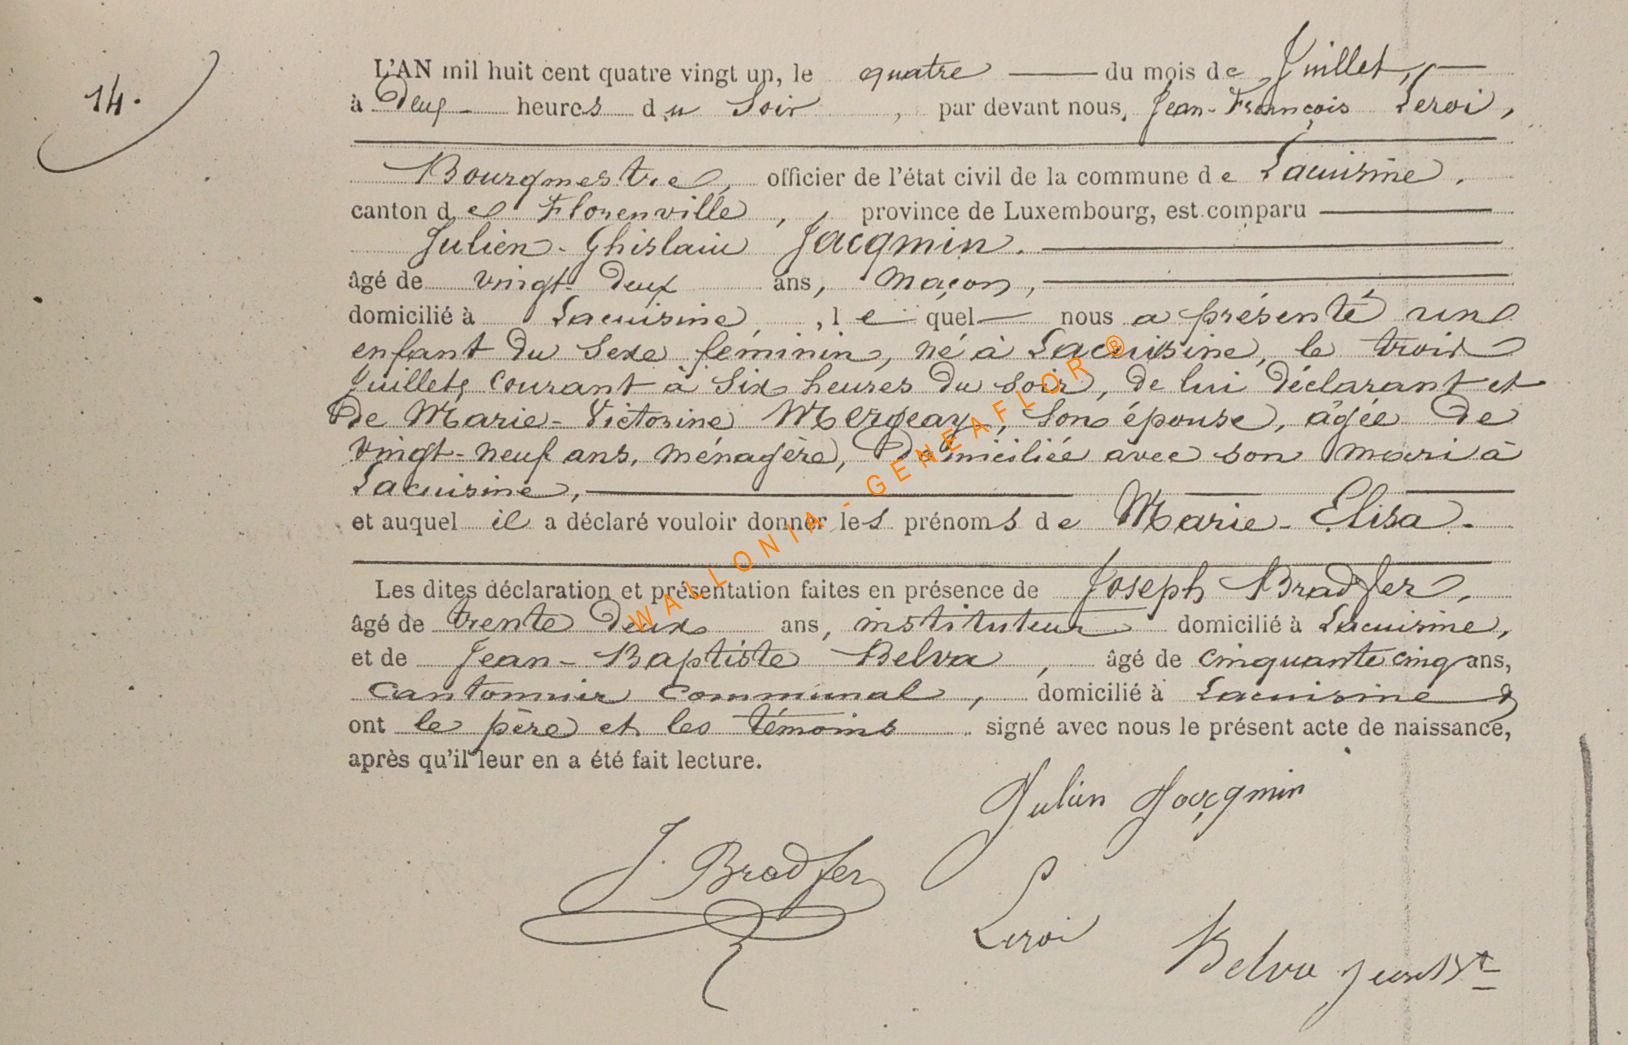 14.
L'AN mil huit cent quatre vingt un, le quatre du mois de Juillet,
à Deux heures du Soir, par devant nous, Jean-François Leroi,
Bourgmestre, officier de l'état civil de la commune de Lacuisine,
canton de Florenville, province de Luxembourg, est comparu
Julien-Ghislain Jacqmin.
âgé de vingt-deux ans, maçon,
domicilié à Lacuisine, lequel nous a présenté un
enfant du Sexe féminin, né à Lacuisine, le trois
Juillet, courant à Six heures du soir, de lui déclarant et
de Marie-Victorine Mergeay, son épouse, âgée de
vingt-neuf ans, ménagère, domiciliée avec son mari à
Lacuisine,
et auquel il a déclaré vouloir donner les prénoms de Marie-Elisa.
Les dites déclaration et présentation faites en présence de Joseph Bradfer,
âgé de trente deux ans, instituteur domicilié à Lacuisine,
et de Jean-Baptiste Belva, âgé de cinquante cinq ans,
Cantonnier communal, domicilié à Lacuisine &
ont le père et les témoins signé avec nous le présent acte de naissance,
après qu'il leur en a été fait lecture.
Julien Jacqmin
J. Bradfer
Leroi
Belva Jean Bte
WALLONIA - GENEAFLOR ®